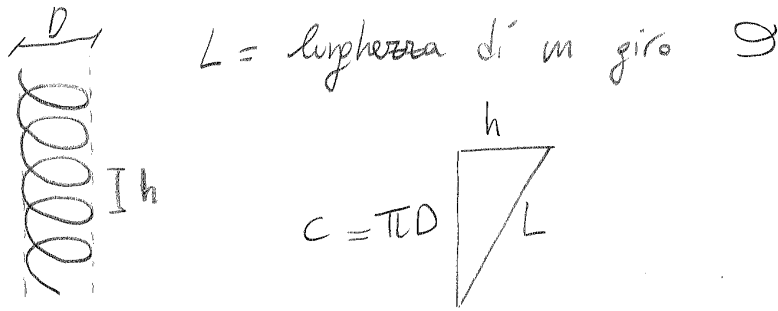 D
L = lunghezza di un giro
h
h
C = πD
L